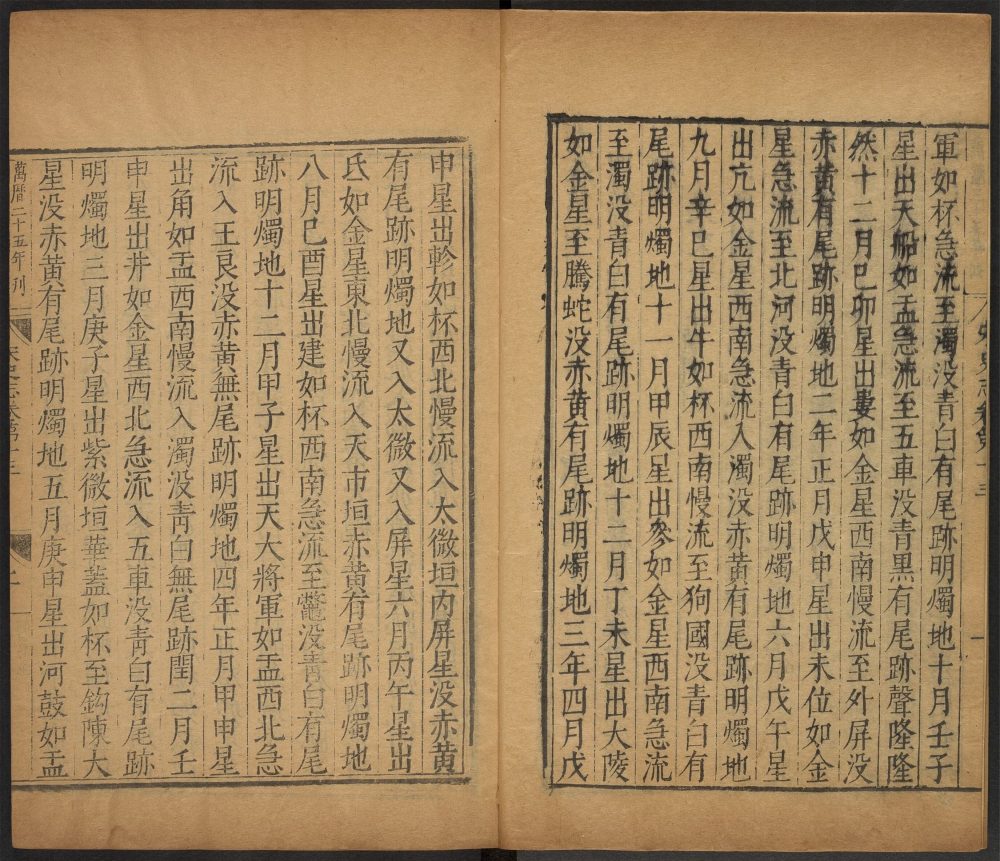 軍如杯急流至濁没青白有尾跡明燭地十月壬子
星出天船如盂急流至五車没青黑有尾跡聲隆隆
然十二月巳卯星出婁如金星西南慢流至外屏没
赤黄有尾跡明燭地二年正月戊申星出未位如金
星急流至北河没青白有尾跡明燭地六月戊午星
出亢如金星西南急流入濁没赤黄有尾跡明燭地
九月辛巳星出牛如杯西南慢流至狗國没青白有
尾跡明燭地十一月甲辰星出參如金星西南急流
至濁没青白有尾跡明燭地十二月丁未星出大陵
如金星至騰蛇没赤黄有尾跡明燭地三年四月戊
申星出軫如杯西北慢流入太微垣内屏星没赤黄
有尾跡明燭地又入太微又入屏星六月丙午星出
氐如金星東北慢流入天市垣赤黄有尾跡明燭地
八月巳酉星出建如杯西南急流至鼈没青白有尾
跡明燭地十二月甲子星出天大將軍如盂西北急
流入王良没赤黄無尾跡明燭地四年正月甲申星
出角如盂西南慢流入濁没青白無尾跡閏二月壬
申星出井如金星西北急流入五車没青白有尾跡
明燭地三月庚子星出紫微垣華蓋如杯至鈎陳大
星没赤黄有尾跡明燭地五月庚申星出河鼓如盂
萬曆二十五年刊